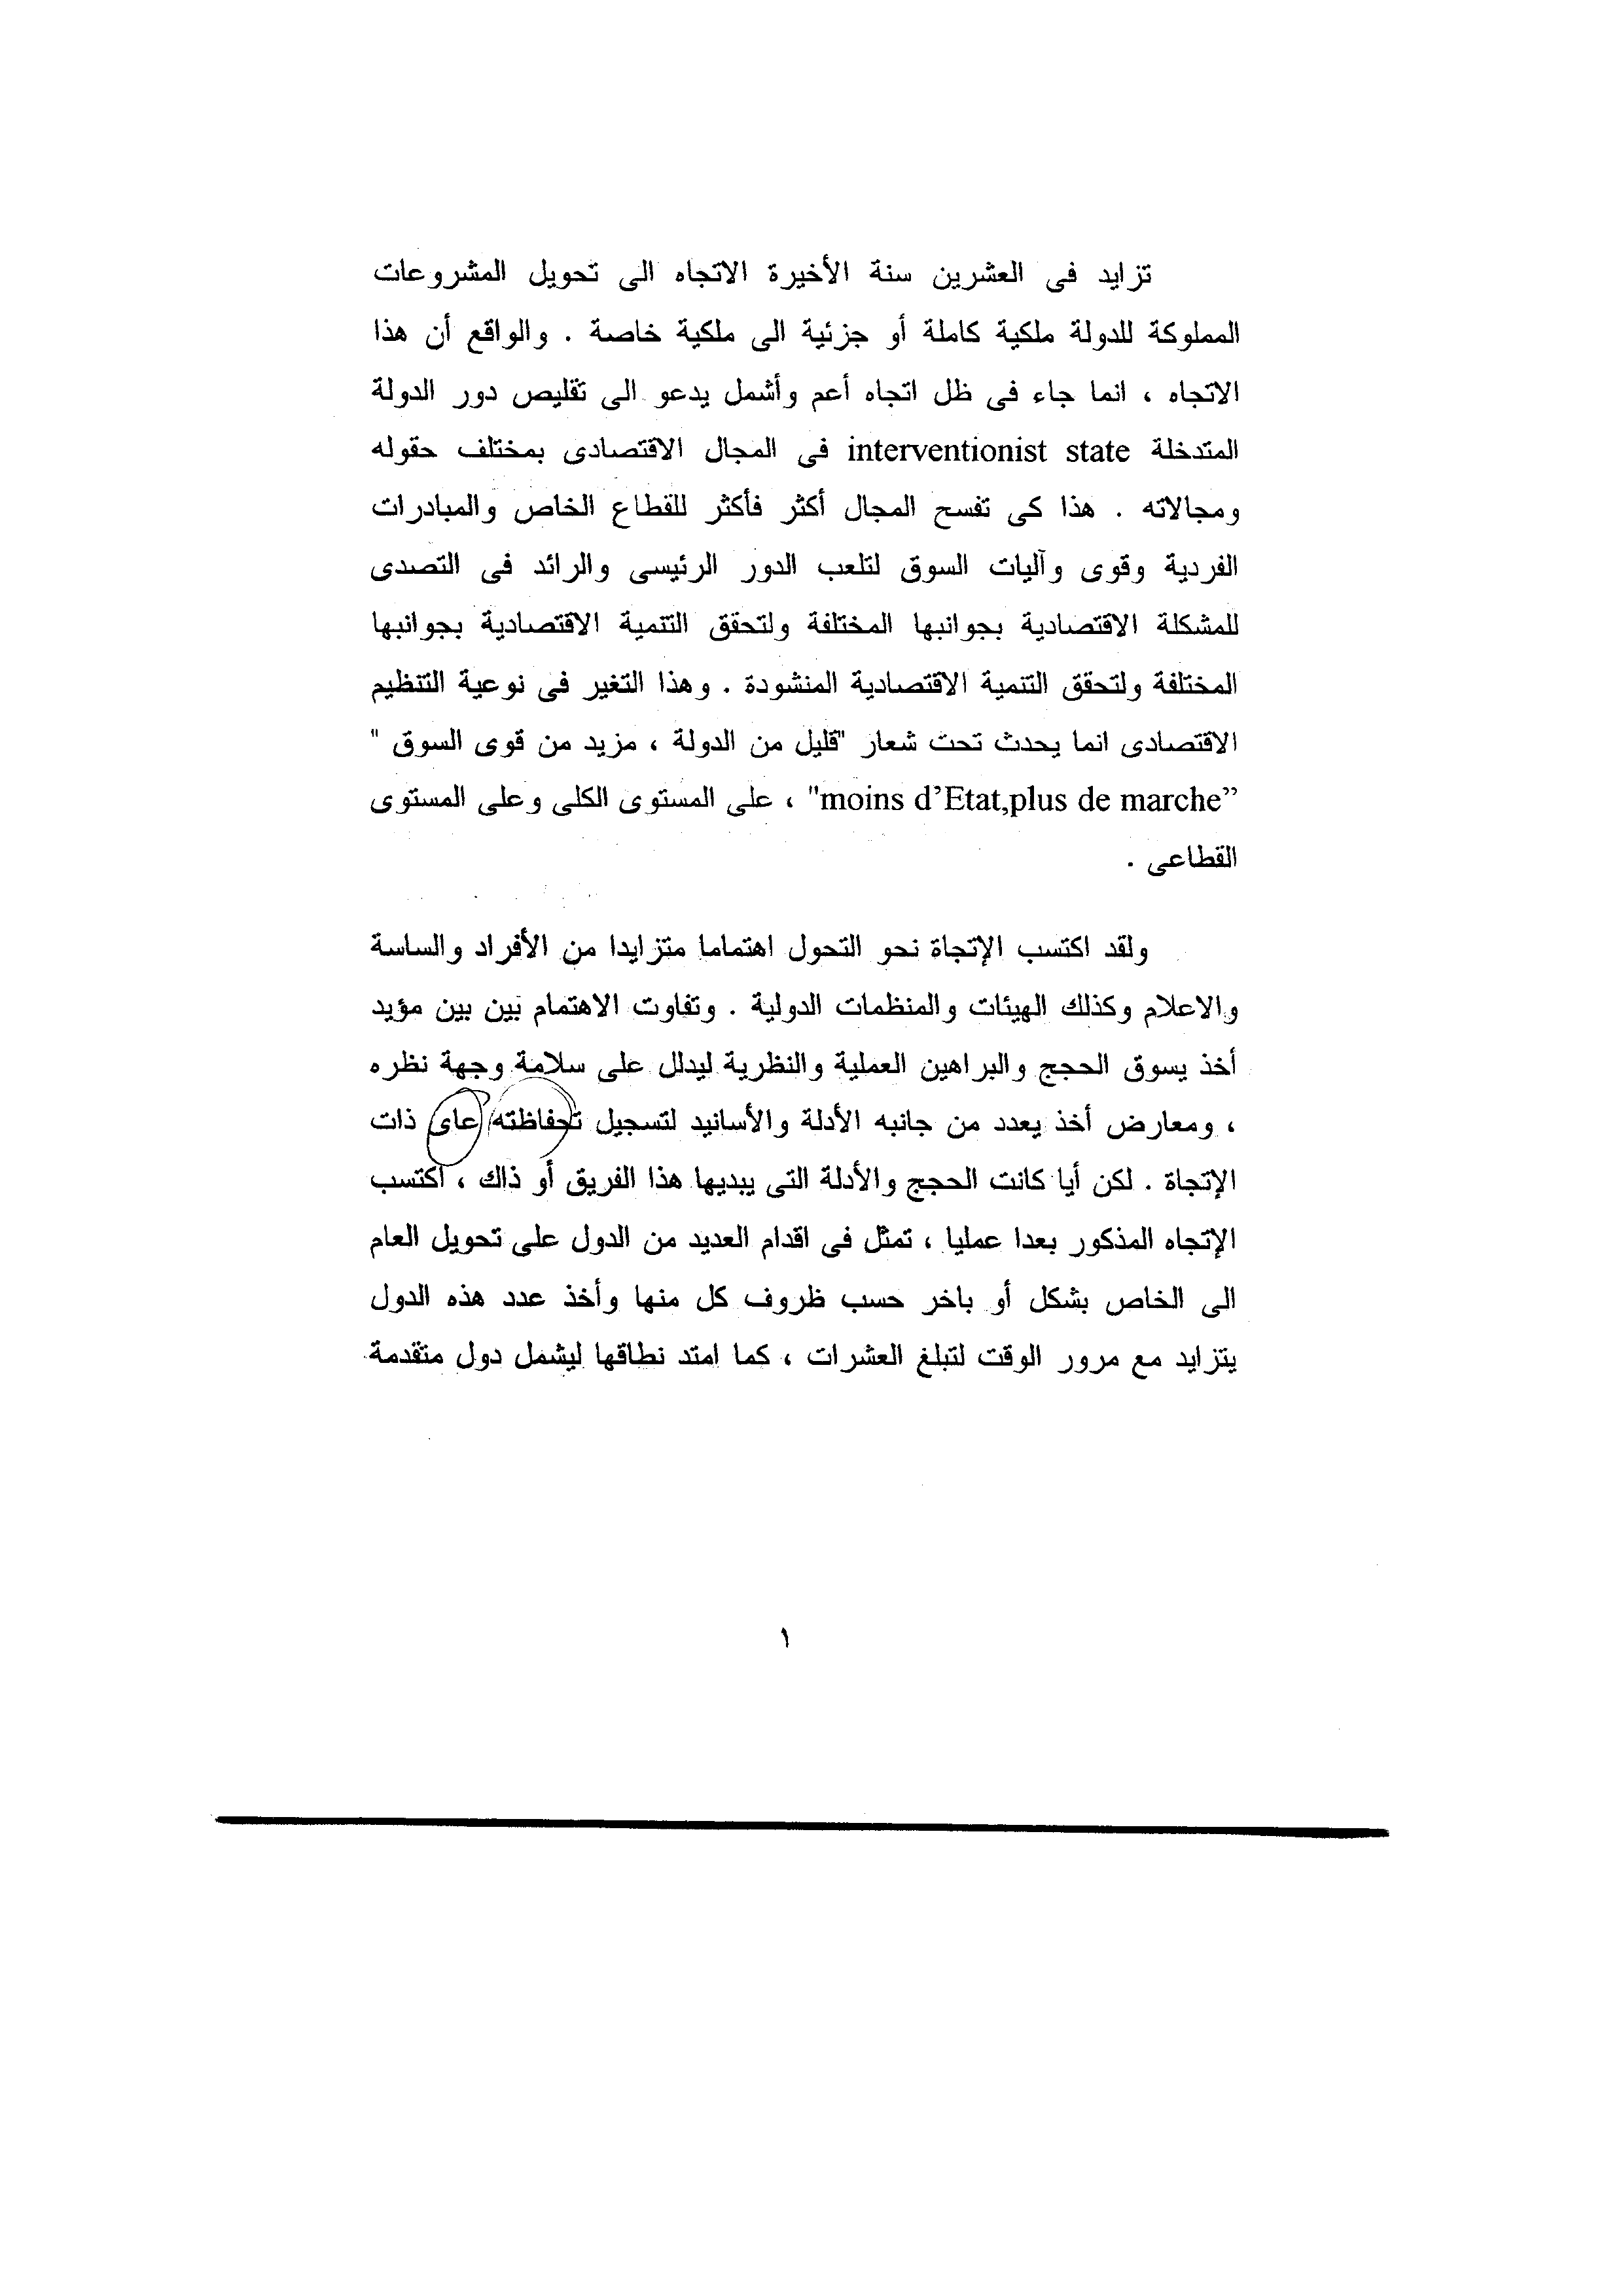 تزايد فى العشرين سنة الأخيرة الاتجاه الى تحويل المشروعات
المملوكة للدولة ملكية كاملة أو جزئية الى ملكية خاصة . والواقع أن هذا
الاتجاه ، انما جاء فى ظل اتجاه أعم وأشمل يدعو الى تقليص دور الدولة
المتدخلة interventionist state فى المجال الاقتصادى بمختلف حقوله
ومجالاته . هذا كى تفسح المجال أكثر فأكثر للقطاع الخاص والمبادرات
الفردية وقوى وآليات السوق لتلعب الدور الرئيسى والرائد فى التصدى
للمشكلة الاقتصادية بجوانبها المختلفة ولتحقق التنمية الاقتصادية بجوانبها
المختلفة ولتحقق التنمية الاقتصادية المنشودة . وهذا التغير فى نوعية التنظيم
الاقتصادى انما يحدث تحت شعار "قليل من الدولة ، مزيد من قوى السوق "
"moins d’Etat,plus de marche” ، على المستوى الكلى وعلى المستوى
القطاعى .
ولقد اكتسب الإتجاة نحو التحول اهتماما متزايدا من الأفراد والساسة
والاعلام وكذلك الهيئات والمنظمات الدولية . وتفاوت الاهتمام بين بين مؤيد
أخذ يسوق الحجج والبراهين العملية والنظرية ليدلل على سلامة وجهة نظره
، ومعارض أخذ يعدد من جانبه الأدلة والأسانيد لتسجيل تحفاظته عاى ذات
الإتجاة . لكن أيا كانت الحجج والأدلة التى يبديها هذا الفريق أو ذاك ، اكتسب
الإتجاه المذكور بعدا عمليا ، تمثل فى اقدام العديد من الدول على تحويل العام
الى الخاص بشكل أو باخر حسب ظروف كل منها وأخذ عدد هذه الدول
يتزايد مع مرور الوقت لتبلغ العشرات ، كما امتد نطاقها ليشمل دول متقدمة
١